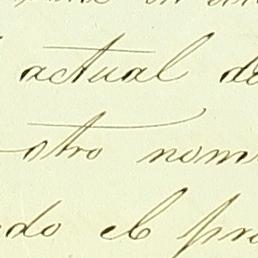 actual de
otro nom
do el pro